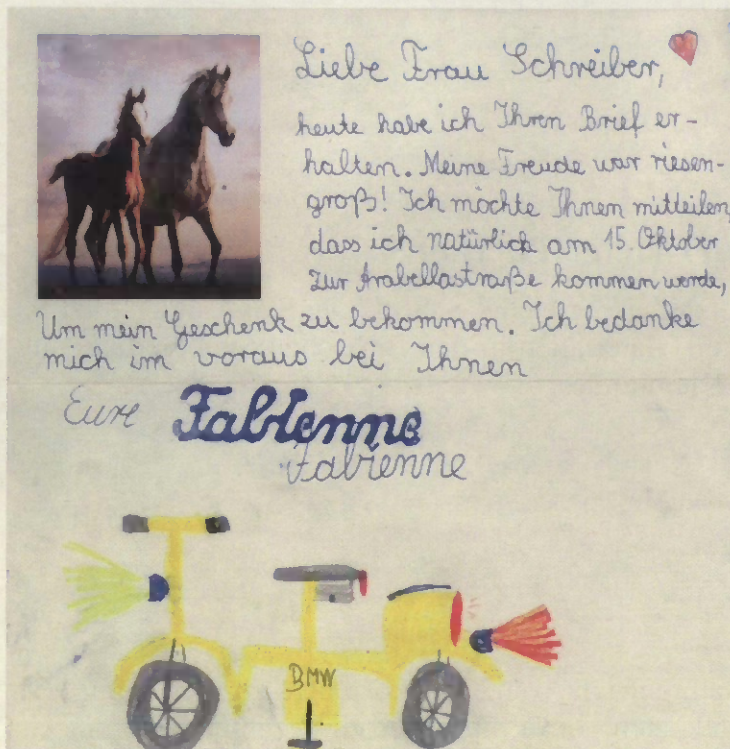 Liebe Frau Schreiber,
heute habe ich Ihren Brief er-
halten. Meine Freude war riesen-
groß! Ich möchte Ihnen mitteilen,
dass ich natürlich am 15. Oktober
zur Arabellastraße kommen werde,
Um mein Geschenk zu bekommen. Ich bedanke
mich im voraus bei Ihnen
Eure Fabienne
Fabienne
BMW